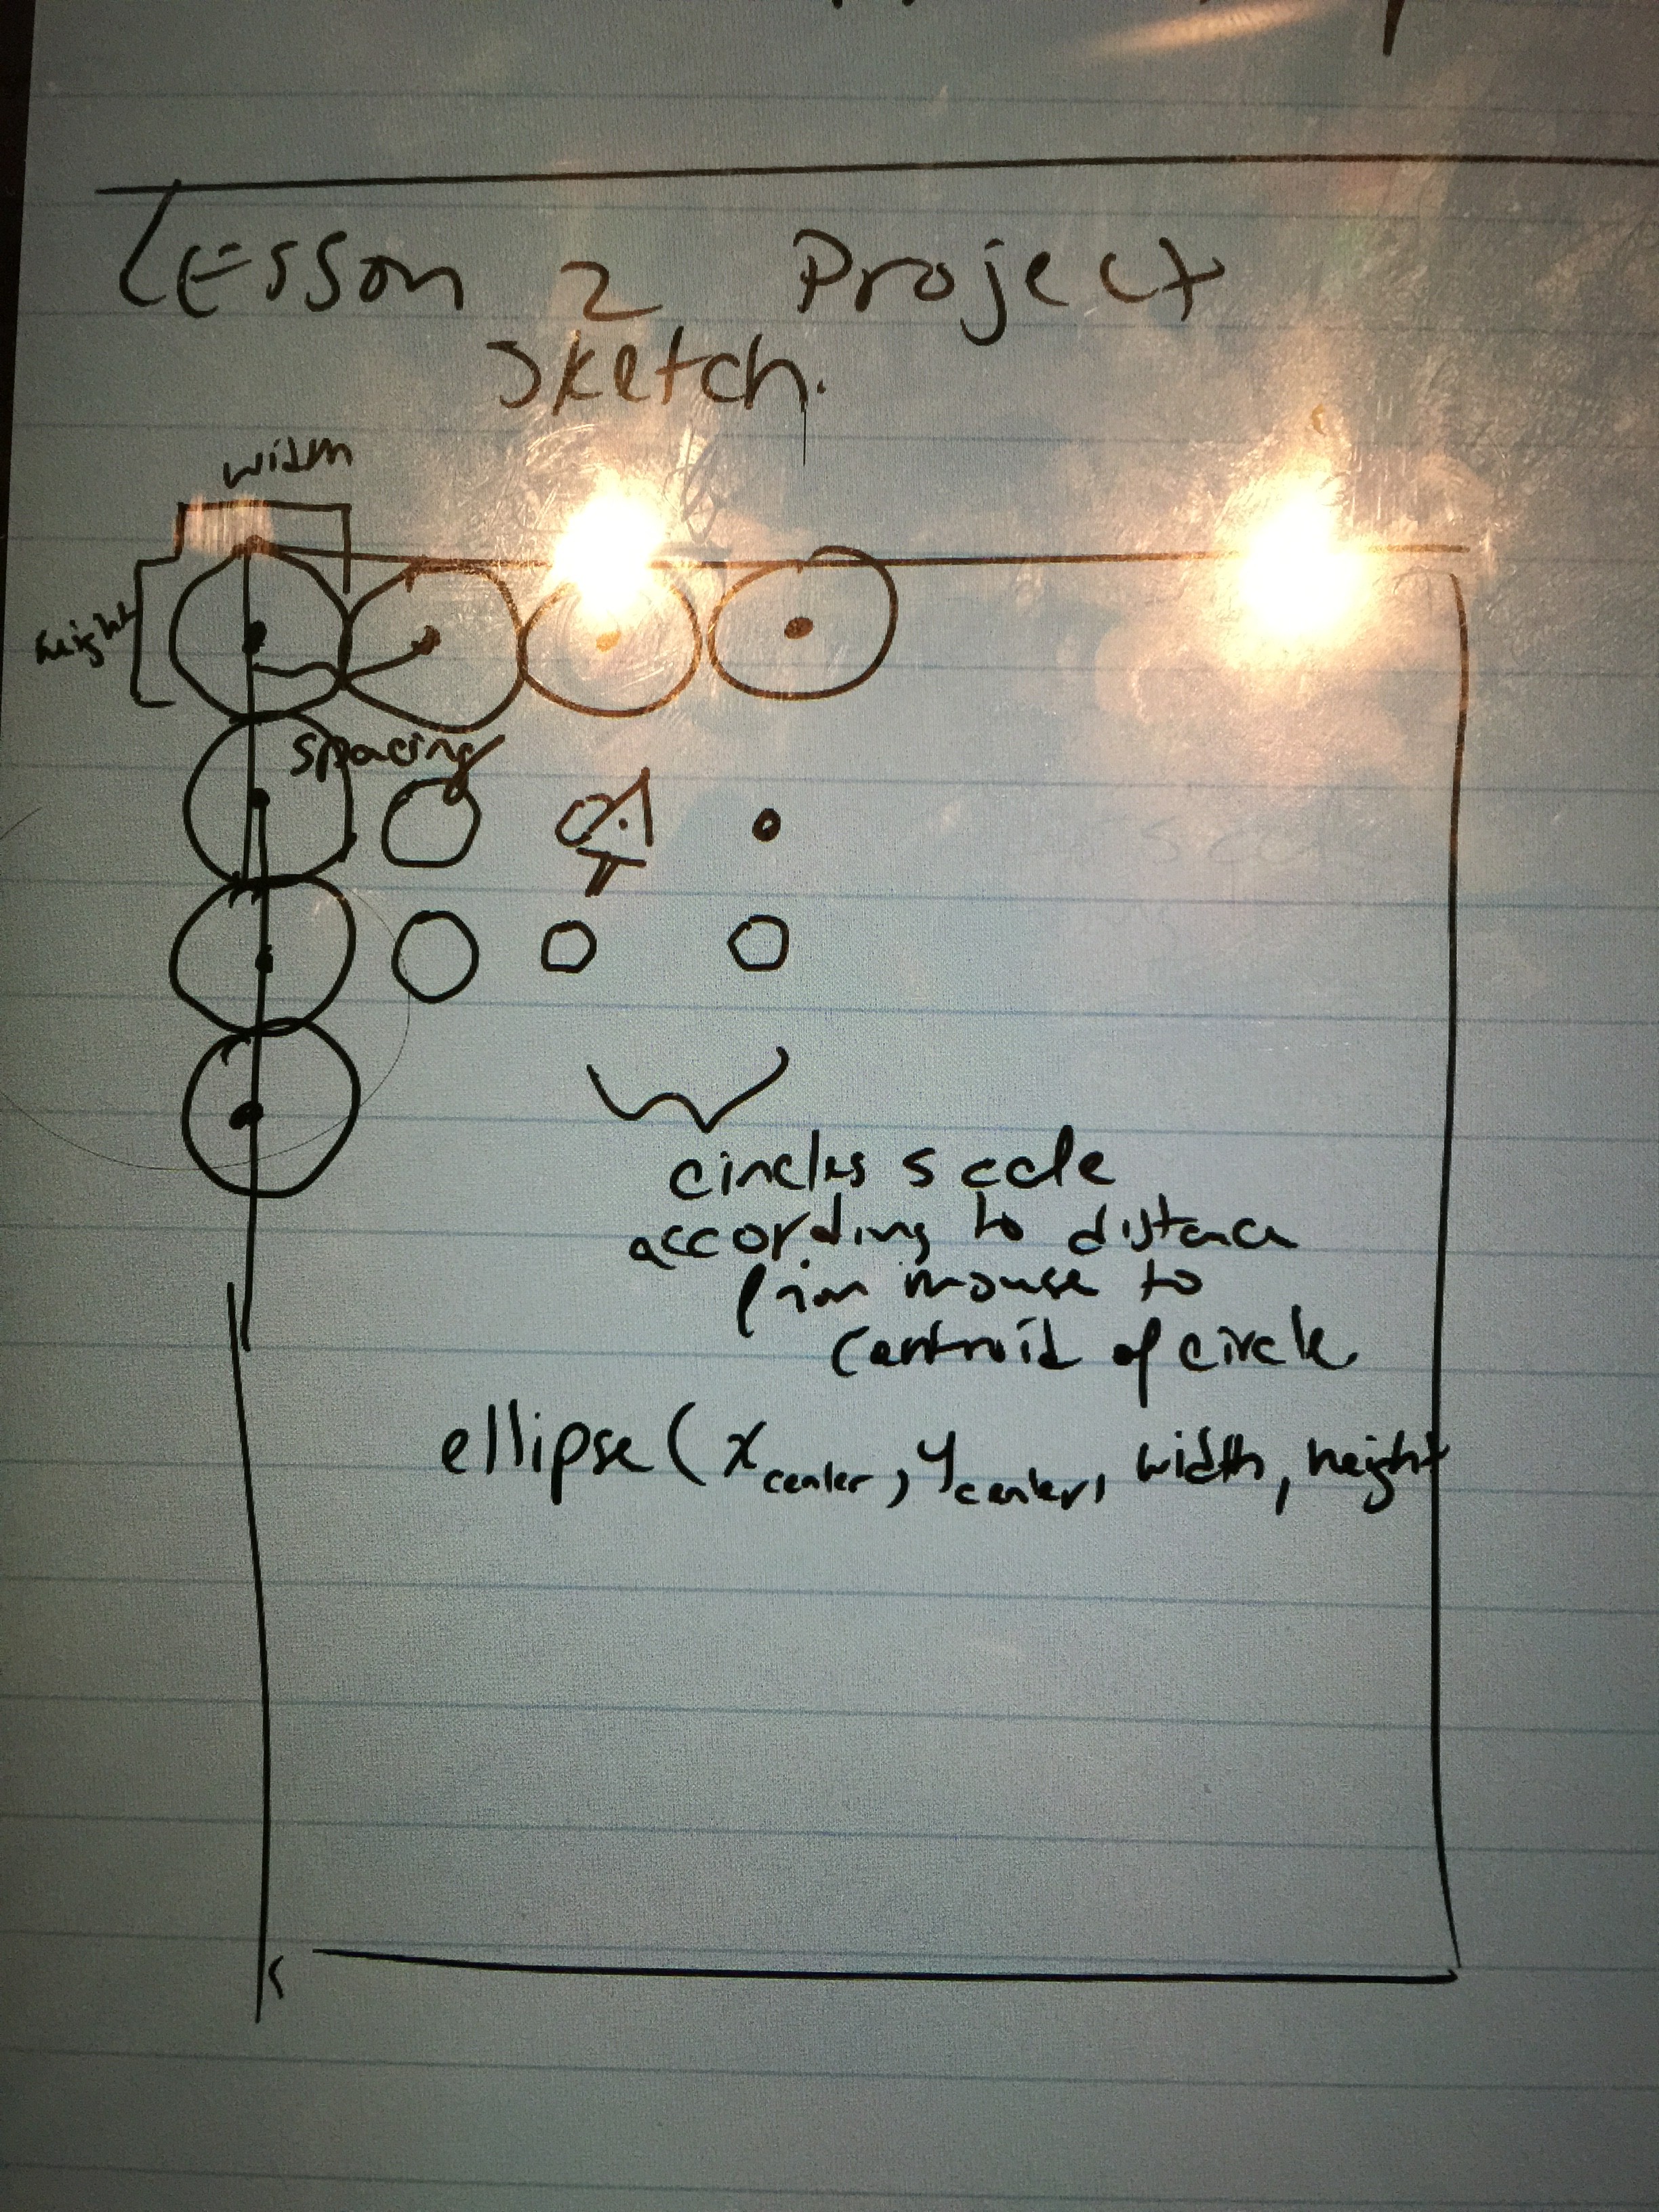 Lesson 2 Project
Sketch.
width
height
spacing
circles scale
according to distance
from mouse to
centroid of circle
ellipse (x center, y center, width, height